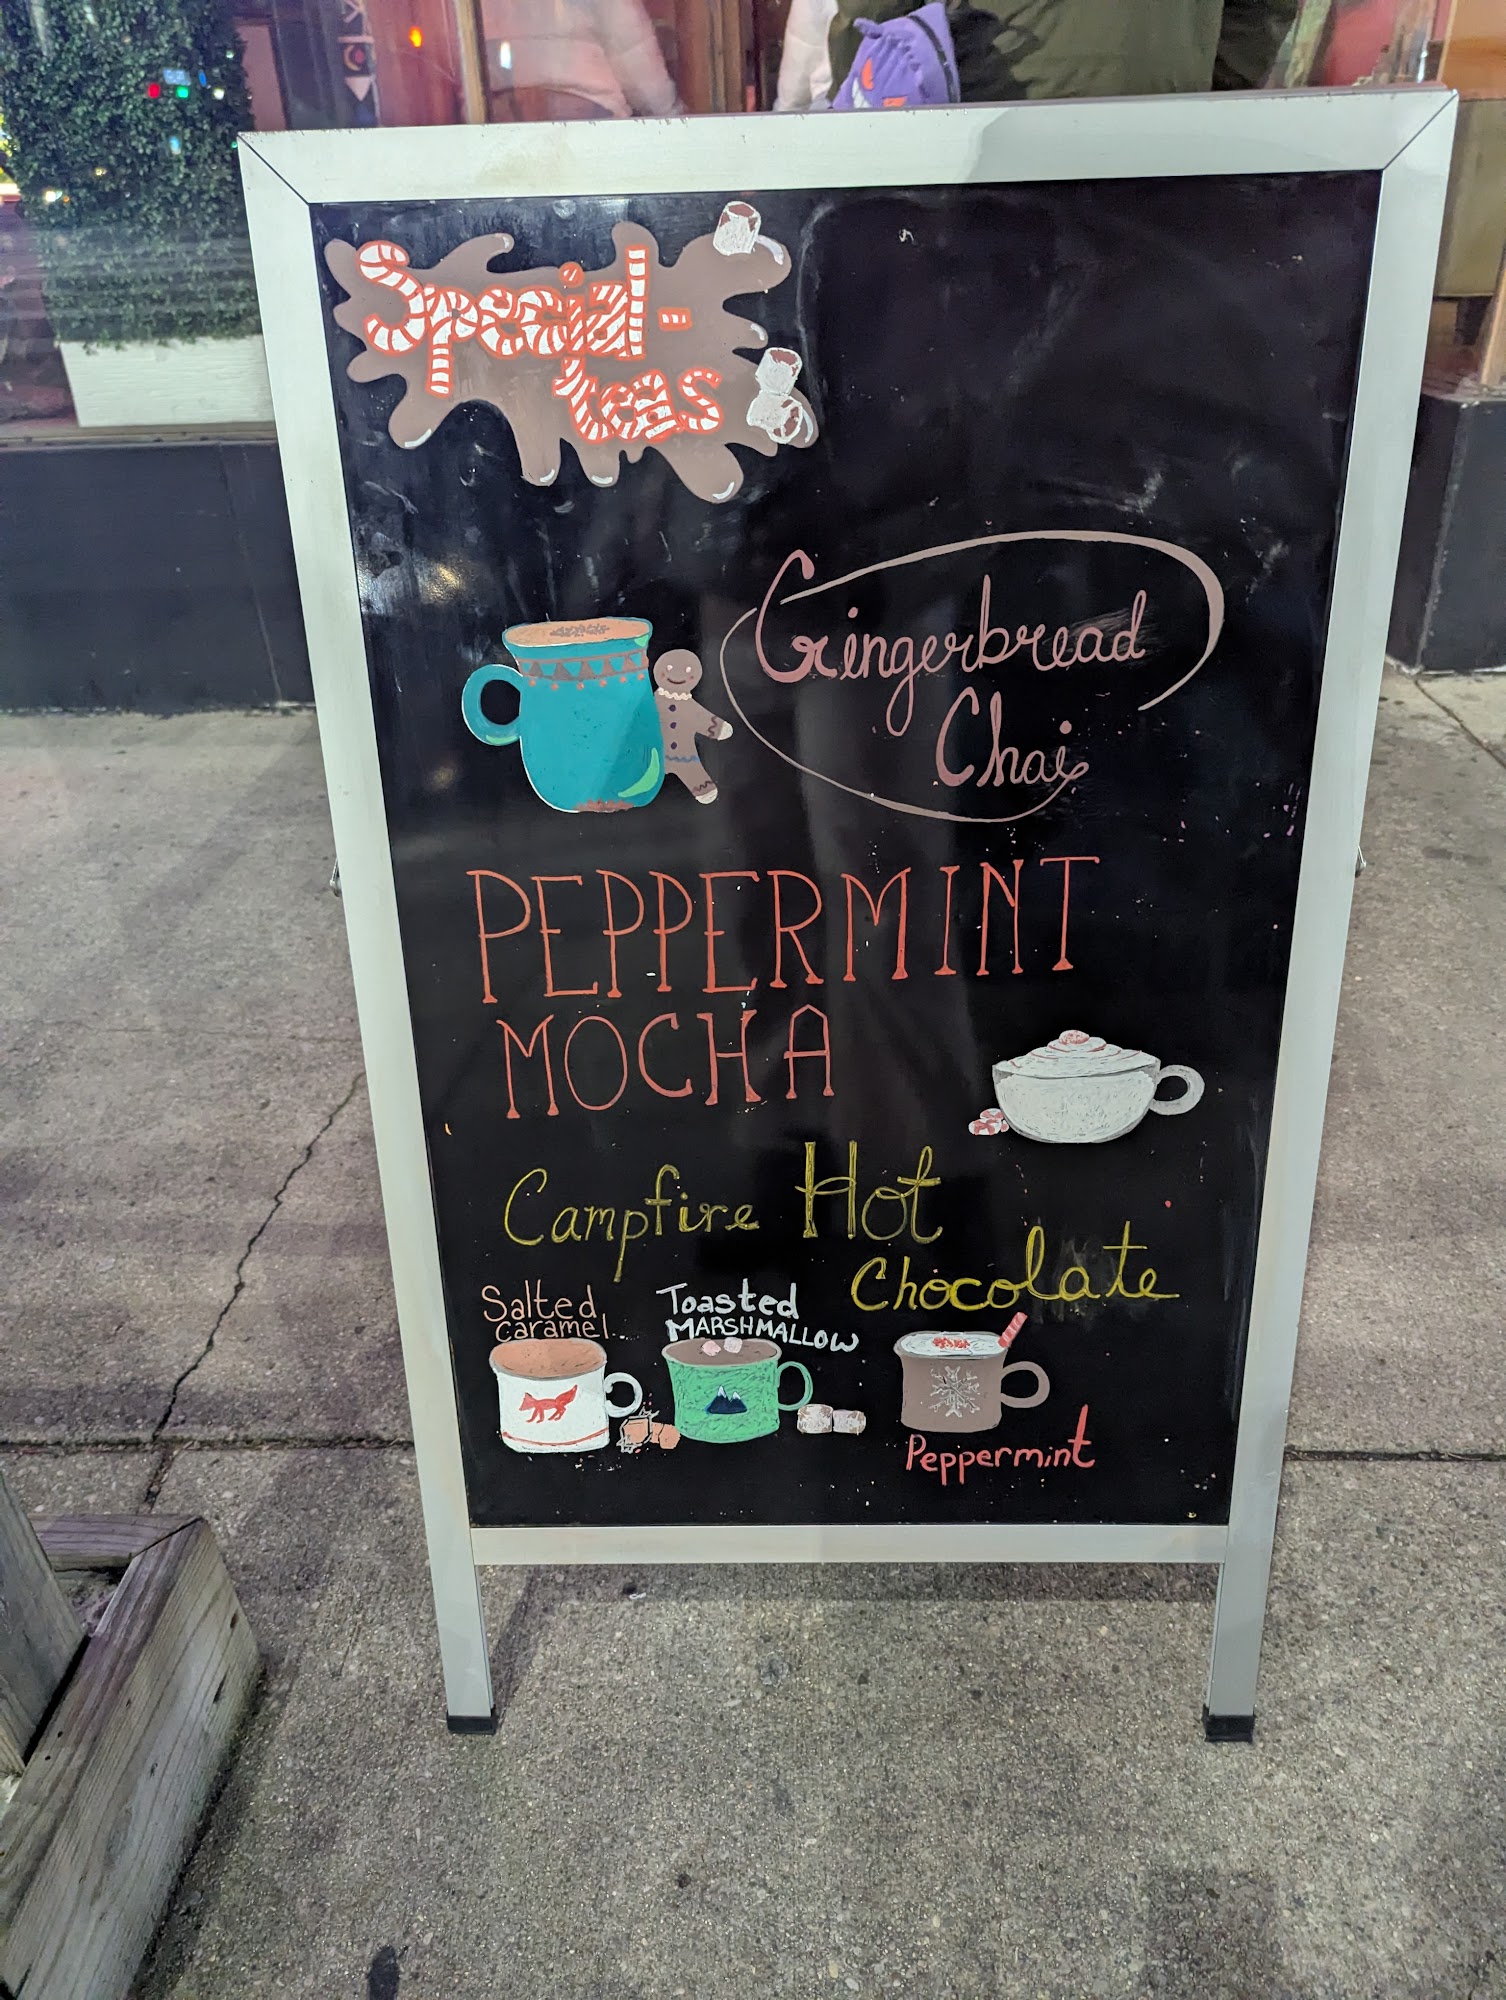 Special-
teas
Gingerbread
Chai
PEPPERMINT
MOCHA
Campfire Hot
Chocolate
Salted
caramel
Toasted
MARSHMALLOW
Peppermint